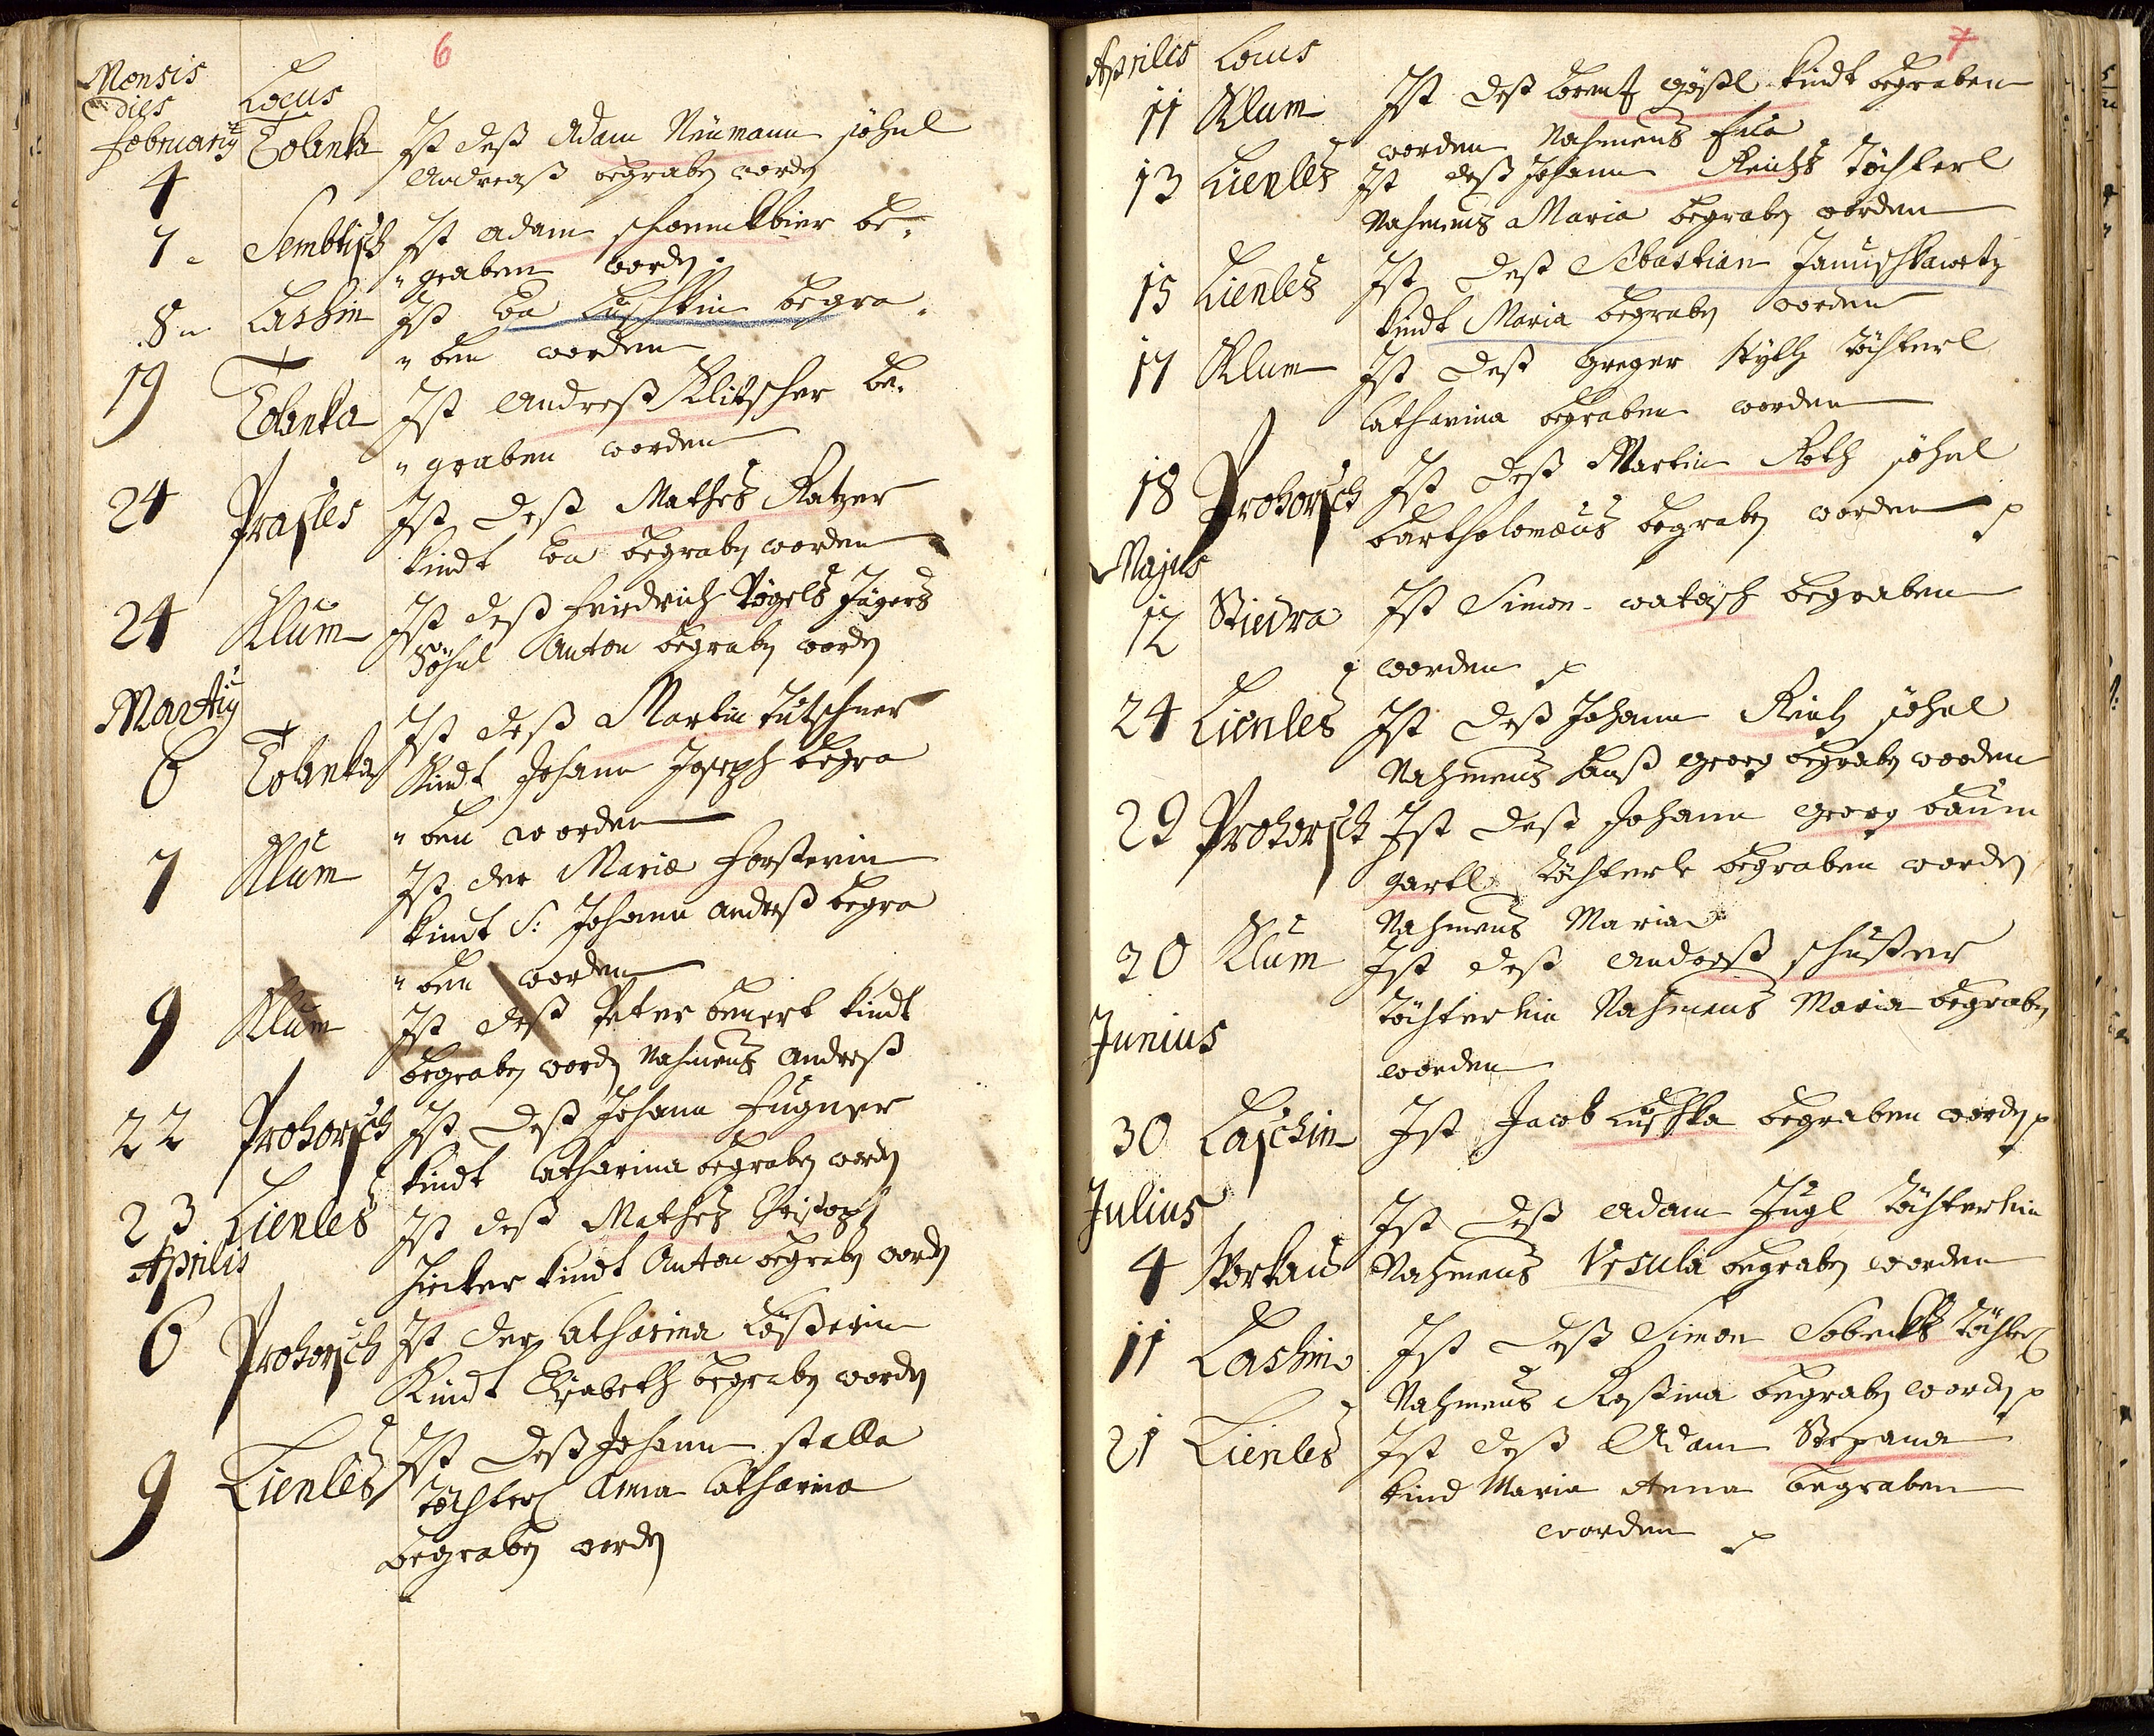 6
Mensis
dies Locus
Februarij Tolenka Ist deß Adam Neümann söhnl
4 Andreaß begraben worden
7 Sembtisch Ist Adam be-
graben worden
8 Lashin Ist Eva Luschkin begra-
ben worden
19 Tolenka Ist Andreß Klitscher be-
graben worden
24 Prasles Ist deß Mathes Ratzer
Kindt Eva begraben worden
24 Klum Ist deß Friedrich Vogels Jägers
Söhnl Anton begraben worden
Martij Ist deß Martin Tutschner
6 Tolenka Kindt Johann Joseph begra
ben worden
7 Klum Ist der Mariæ Forsterin
Kindt S: Johann Andreß begra
ben worden
9 Klum Ist deß Peter Kindt
begraben worden Nahmens Andreß
22 Prohorsch Ist deß Johann Fugner
Kindt Catharina begraben worden
23 Lienles Ist deß Mathes Christoph
Aprilis Kindt Anton begraben worden
6 Prohorsch Ist der Catharina Lößerin
Kindt Elisabeth begraben worden
9 Lienles Ist deß Johann Stalla
töchterl Anna Catharina
begraben worden
7
Aprilis Locus
11 Klum Ist deß Lorentz Gößl Kindt begraben
worden Nahmens Eva
13 Lienles Ist deß Johann töchterl
Nahmens Maria begraben worden
15 Lienles Ist deß Sebastian Januschkawetz
Kindt Maria begraben worden
17 Klum Ist deß Greger töchterl
Catharina begraben worden
18 Prohorsch Ist deß Martin Roth söhnl
Bartholomæus begraben worden
Majus
12 Stiedra Ist Simon Watasch begraben
worden
24 Lienles Ist deß Johann söhnl
Nahmens Hanß Georg begraben worden
29 Prohorsch Ist deß Johann Georg Baum
gartl töchterle begraben worden
Nahmens Maria
30 Klum Ist deß Andreß Schuster
töchterlin Nahmens Maria begraben
Junius
worden
30 Laschin Ist Jacob Luschka begraben worden
Julius Ist deß Adam Fugl töchterlin
4 Nahmens Vrsula begraben worden
11 Lashin Ist deß Simon Sobecks töchterl
Nahmens Rosina begraben worden
21 Lienles Ist deß Adam Stepana
Kind Maria Anna begraben
worden